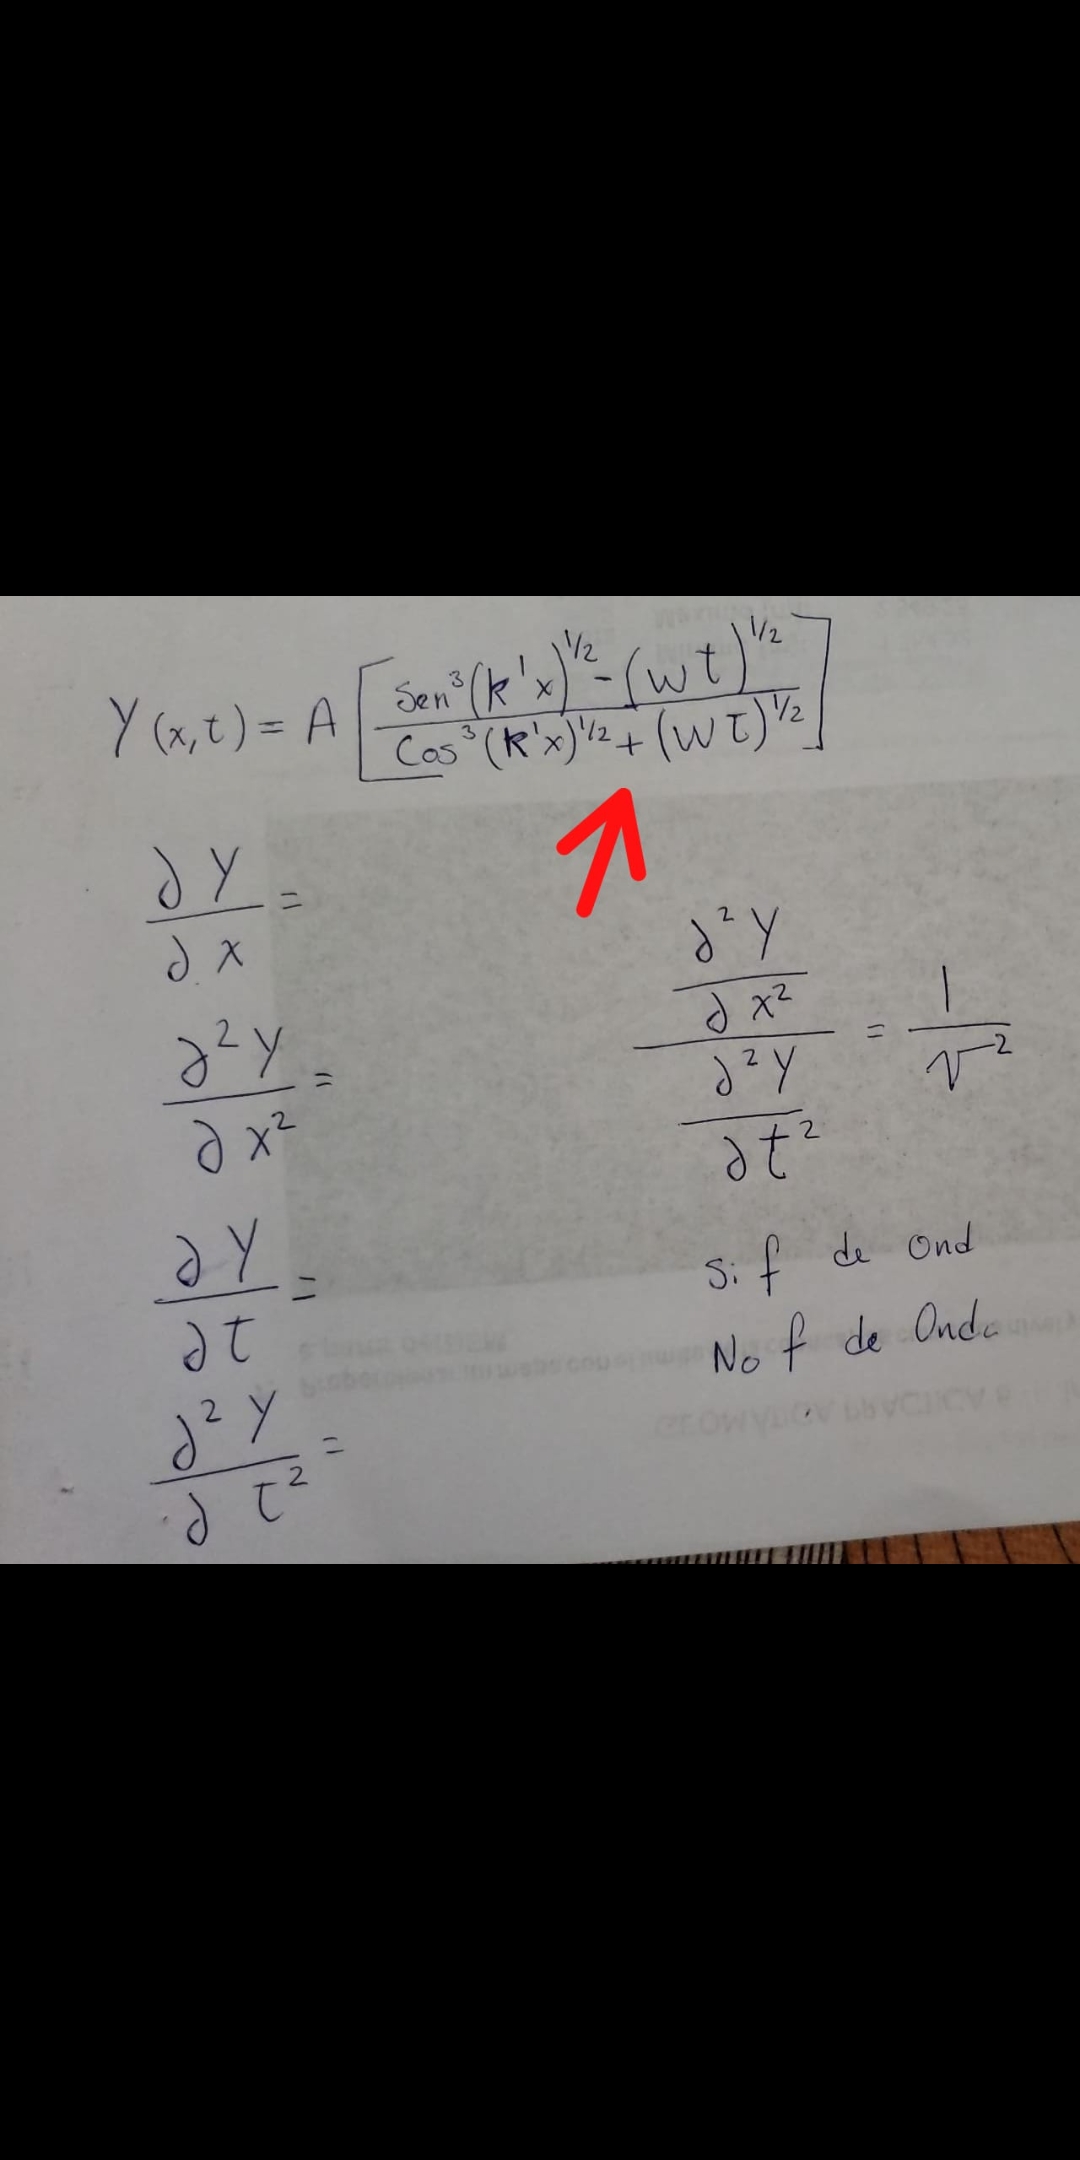 Y(x,t) = A [ Sen³(k'x)^1/2 - (wt)^1/2
Cos³(k'x)^1/2 + (wt)^1/2 ]
∂Y
∂x =
∂²Y
∂x² =
∂Y
∂t =
∂²Y
∂t² =
∂²Y
∂x²
∂²Y
∂t²
= 1
v²
Si f de Ond
No f de Onda
GEOMATICA PRACTICA